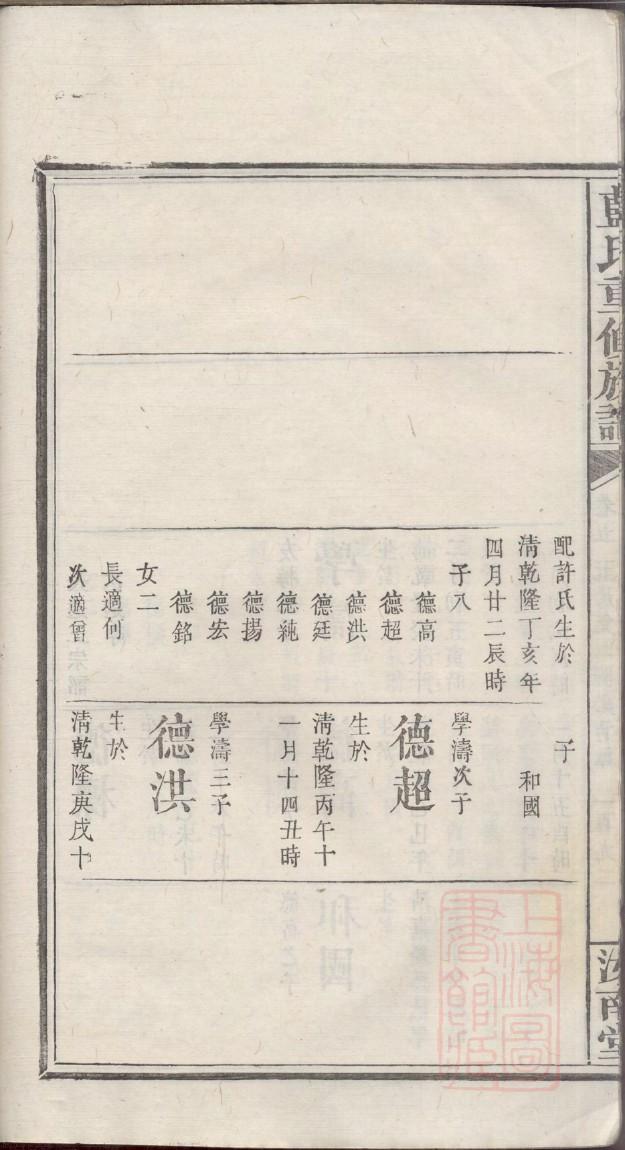 藍氏重修族譜
汝南堂
配許氏生於
清乾隆丁亥年
四月廿二辰時
子八
德高
德超
德洪
德廷
德純
德揚
德宏
德銘
女二
長適何
次適曾
子
和國
學濤次子
德超
生於
清乾隆丙午十
一月十四丑時
學濤三子
德洪
生於
清乾隆庚戌十
上海圖
書館藏